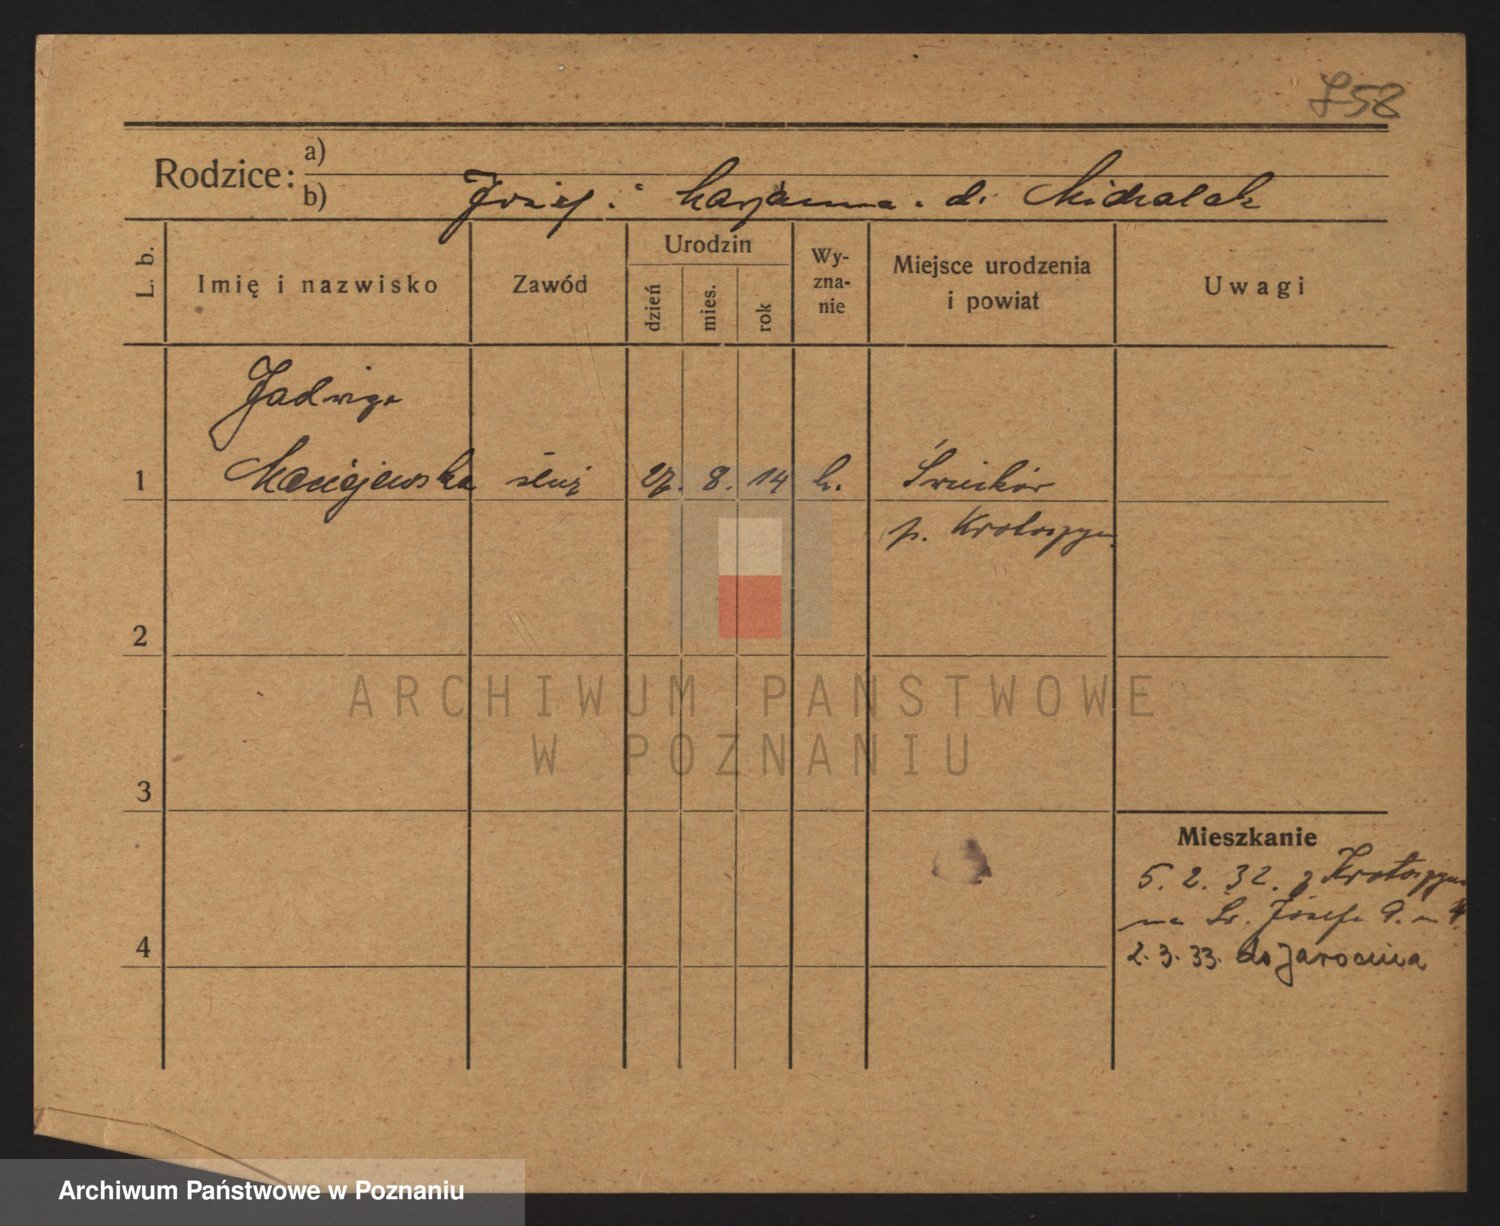 758
Rodzice:
a)
b) Józef i Marjanna d. Michalak
L. b.
Imię i nazwisko
Zawód
Urodzin
dzień
mies.
rok
Wy-
zna-
nie
Miejsce urodzenia
i powiat
Uwagi
Jadwiga
1 Maciejewska służ 27. 8. 14 k.
p. Krotoszyn
2
3
4
Mieszkanie
5. 2. 32. z Krotoszyna
na Św. Józefa 9. m 4.
2. 3. 33. do Jarocina
ARCHIWUM PAŃSTWOWE
W POZNANIU
Archiwum Państwowe w Poznaniu